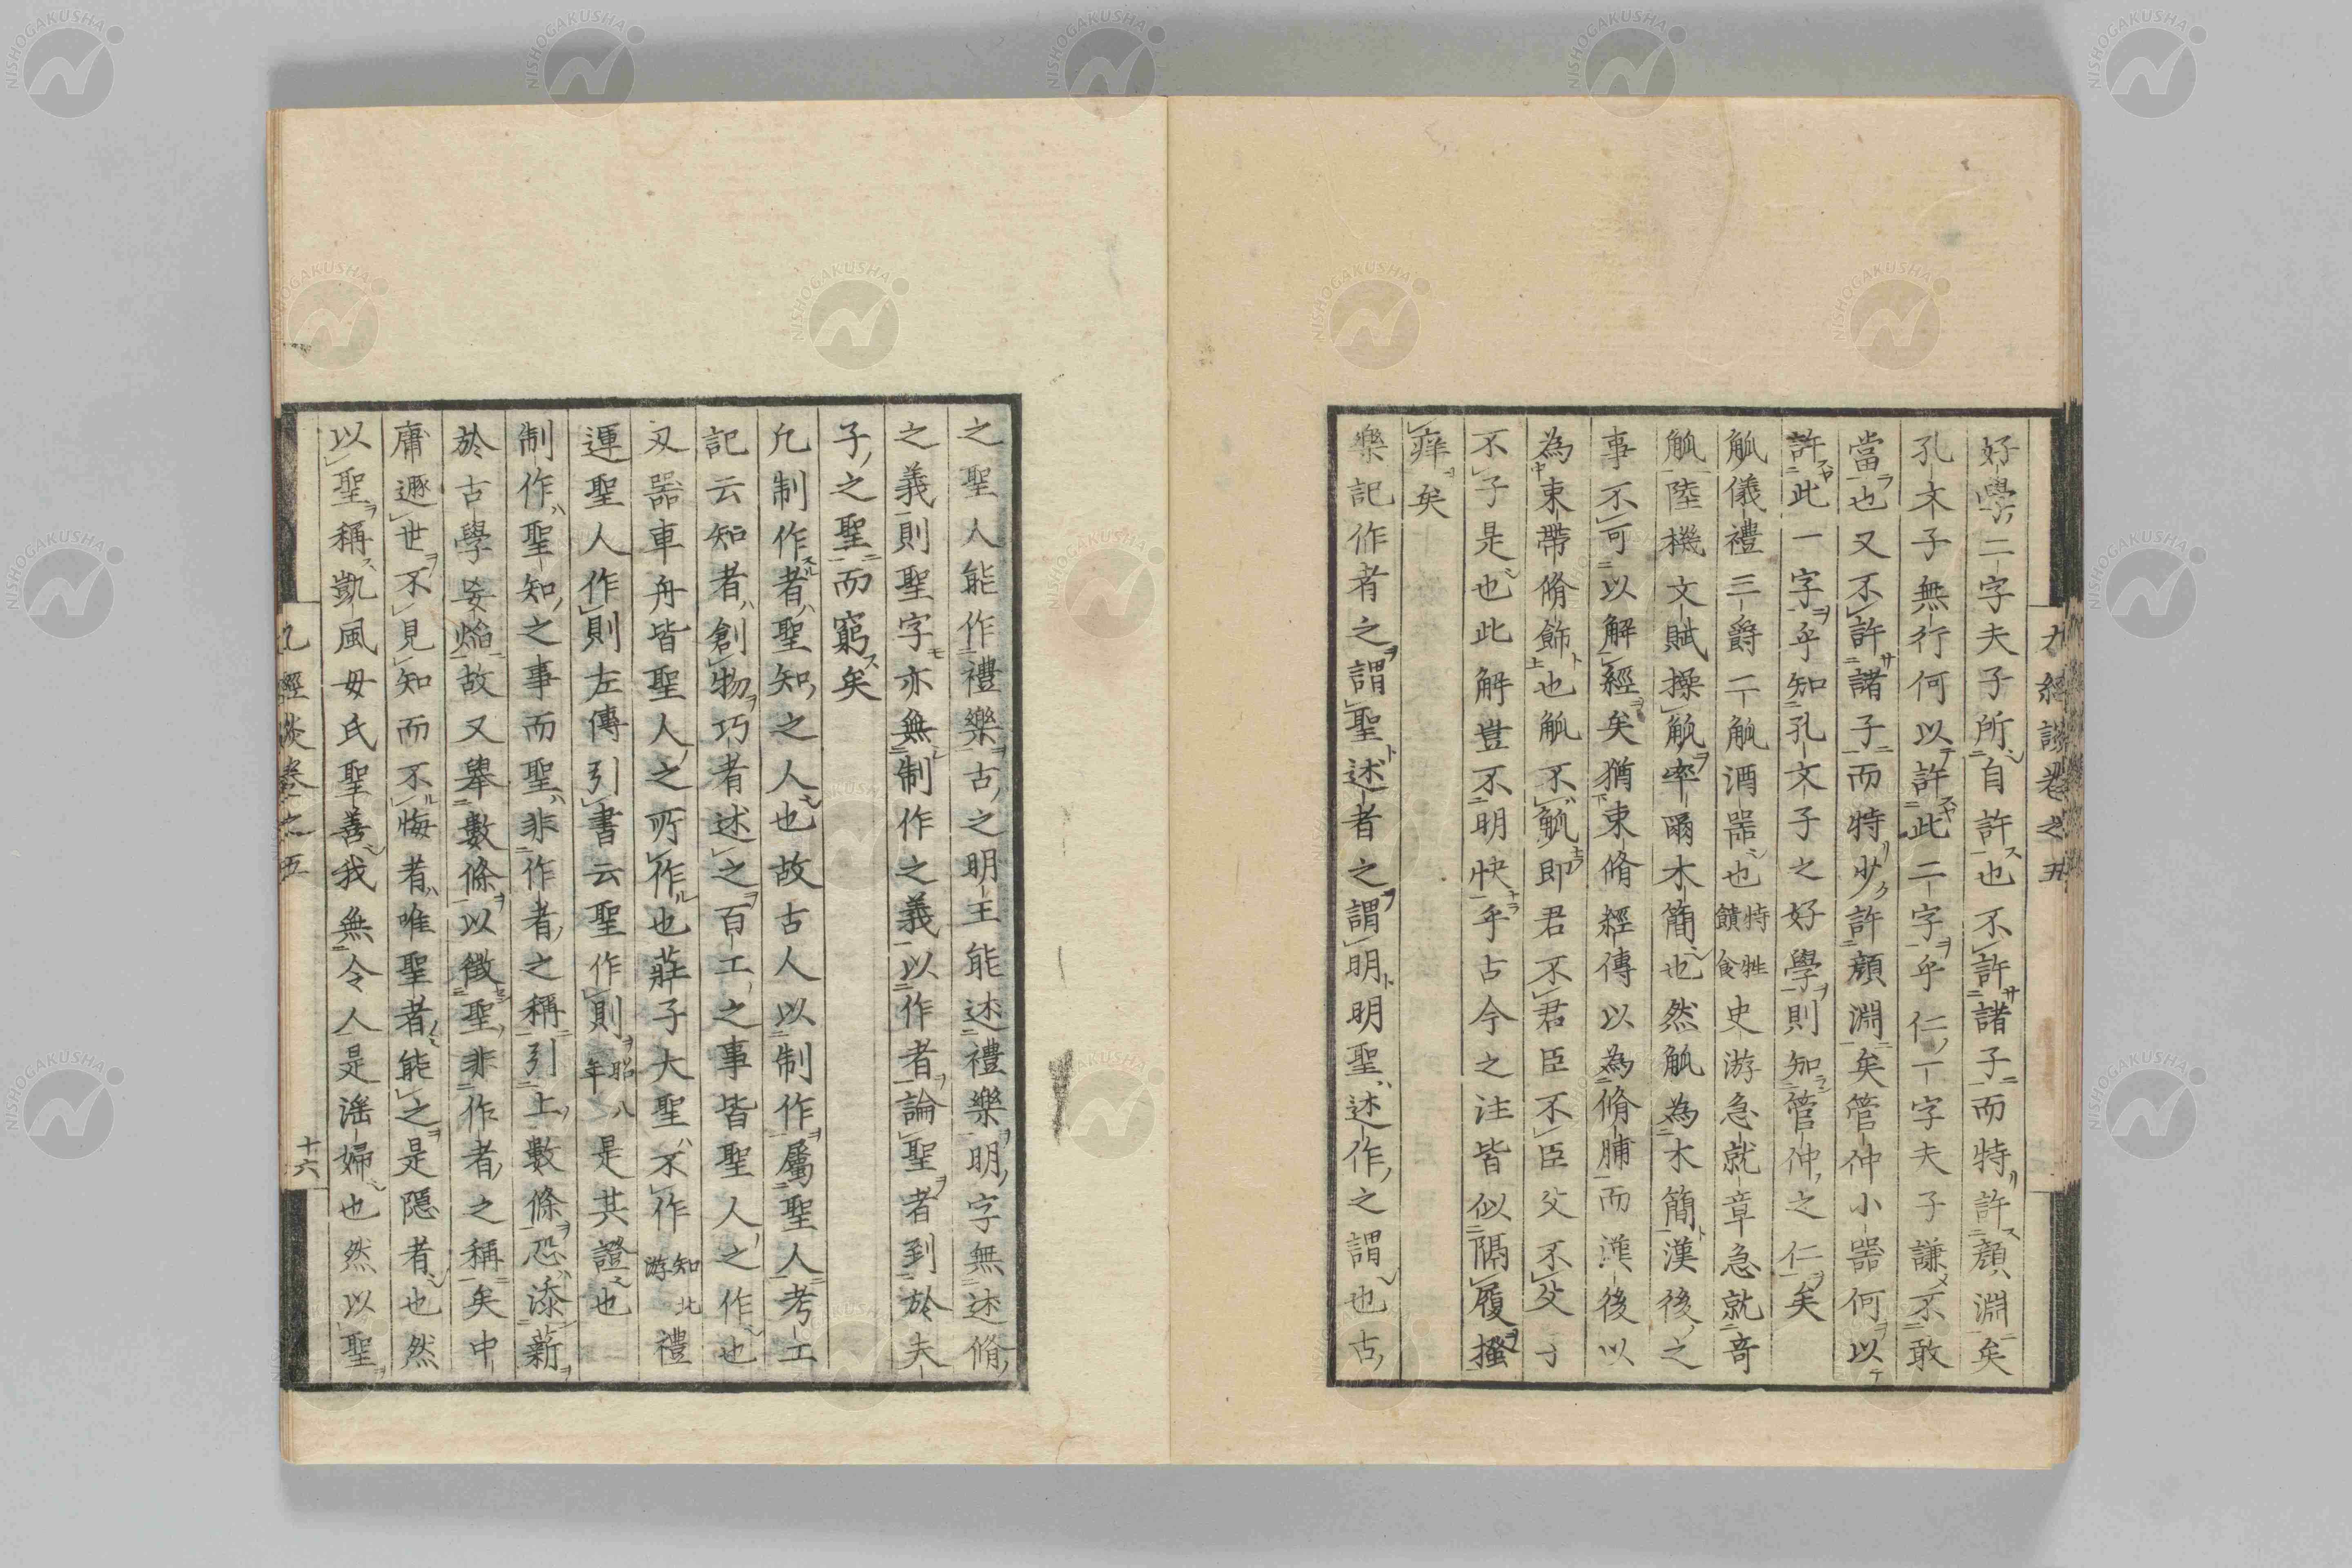 九經談卷之五
好學二字夫子所自許也不許諸子而特許顏淵矣
孔文子無行何以許此二字乎仁一字夫子謙不敢
當也又不許諸子而特少許顏淵矣管仲小器何以
許此一字乎知孔文子之好學則知管仲之仁矣
觚儀禮三爵二觚酒器也特牲饋食史游急就章急就奇
觚陸機文賦操觚率爾木簡也然觚為木簡漢後之
事不可以解經矣猶束脩經傳以為脩脯而漢後以
為束帶脩飾也觚不觚即君不君臣不臣父不父子
不子是也此解豈不明快乎古今之注皆似隔履搔
痒矣
樂記作者之謂聖述者之謂明明聖述作之謂也古
之聖人能作禮樂古之明王能述禮樂明字無述脩
之義則聖字亦無制作之義以作者論聖者到於夫
子之聖而窮矣
凡制作者聖知之人也故古人以制作屬聖人考工
記云知者創物巧者述之百工之事皆聖人之作也
又器車舟皆聖人之所作也莊子大聖不作知北游禮
運聖人作則左傳引書云聖作則昭八年是其證也
制作聖知之事而聖非作者之稱引上數條恐添薪
於古學妄焰故又舉數條以徵聖非作者之稱矣中
庸遯世不見知而不悔者唯聖者能之是隱者也然
以聖稱凱風母氏聖善我無令人是淫婦也然以聖
九經談卷之五
十六
NISHOGAKUSHA